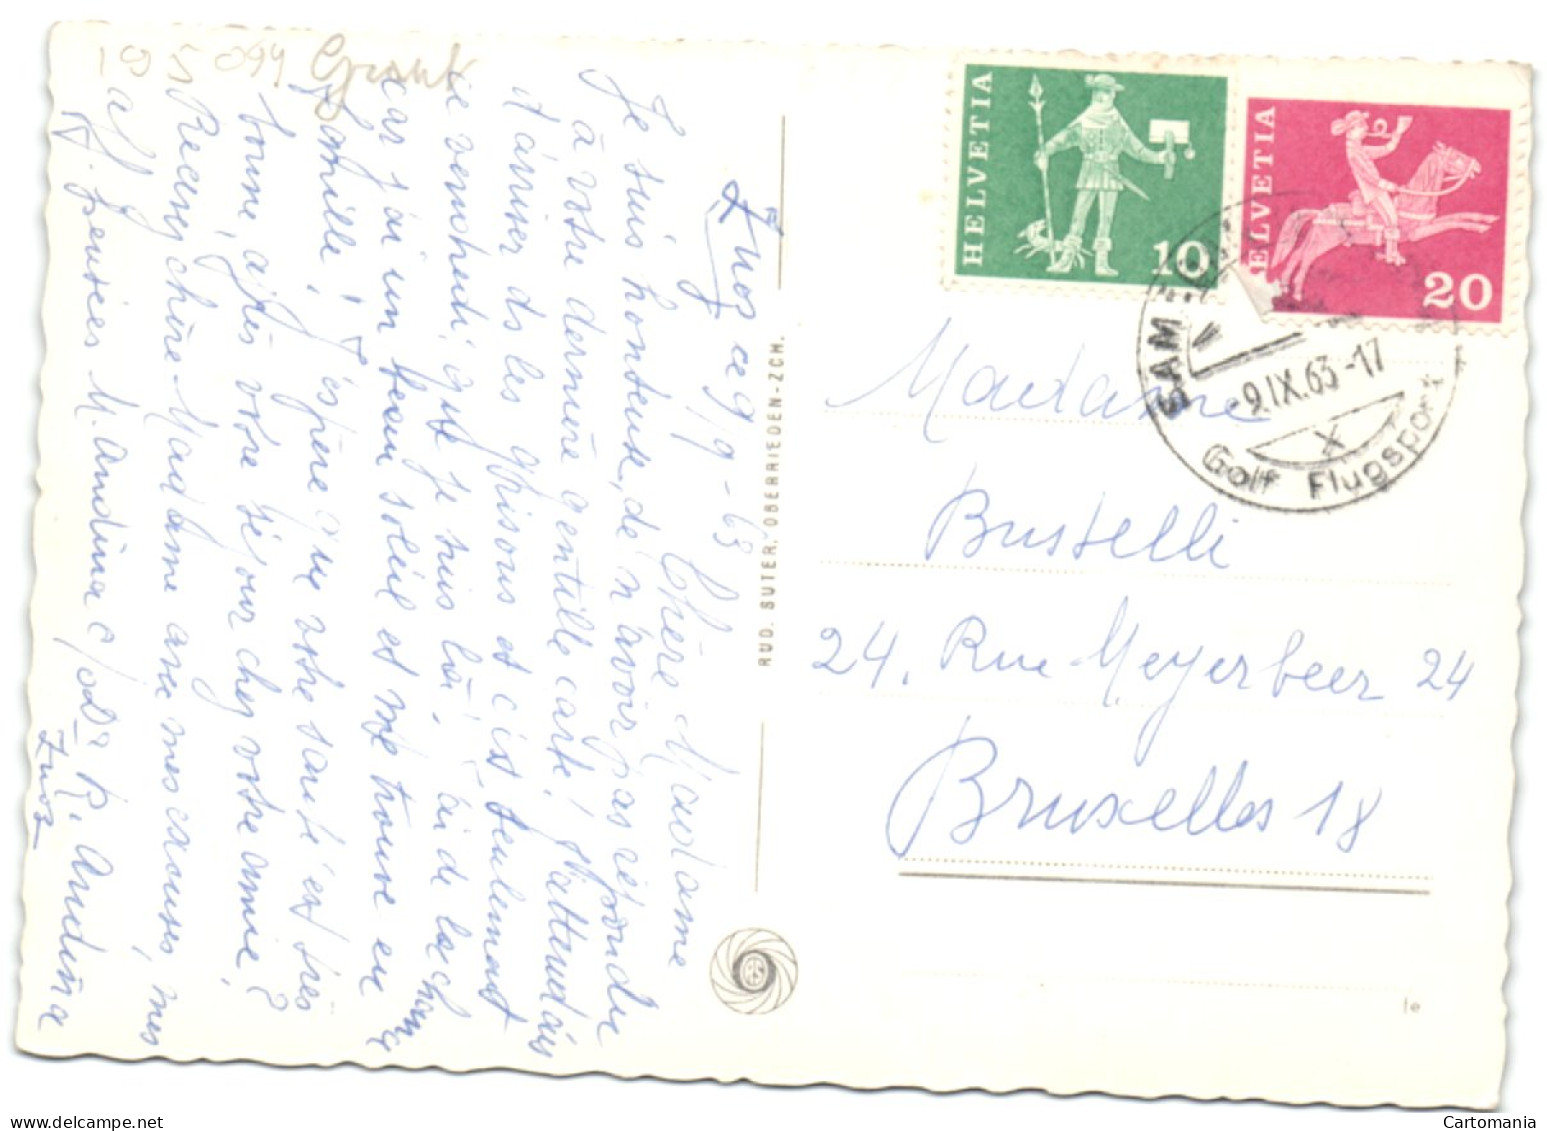 195094 Grant
Zuoz ce 9/9-63
Chère Madame
Je suis honteuse, de n'avoir pas répondu
à votre dernière gentille carte! J'attendais
d'arriver ds les grisons et c'est seulement
ce vendredi que je suis là. J'ai de la chance
car j'ai un beau soleil et me trouve en
famille! J'espère que votre santé est très
bonne, après votre séjour chez votre amie?
Recevez chère Madame avec mes excuses, mes
aff. pensées M. Andina c/o Dr R. Andina
Zuoz
RUD. SUTER, OBERRIEDEN-ZCH.
HELVETIA
10
HELVETIA
20
SAM
-9.IX.63-17
Golf Flugsport
Madame
Bustelli
24. Rue Meyerbeer 24
Bruxelles 18
delcampe.net
Cartomania